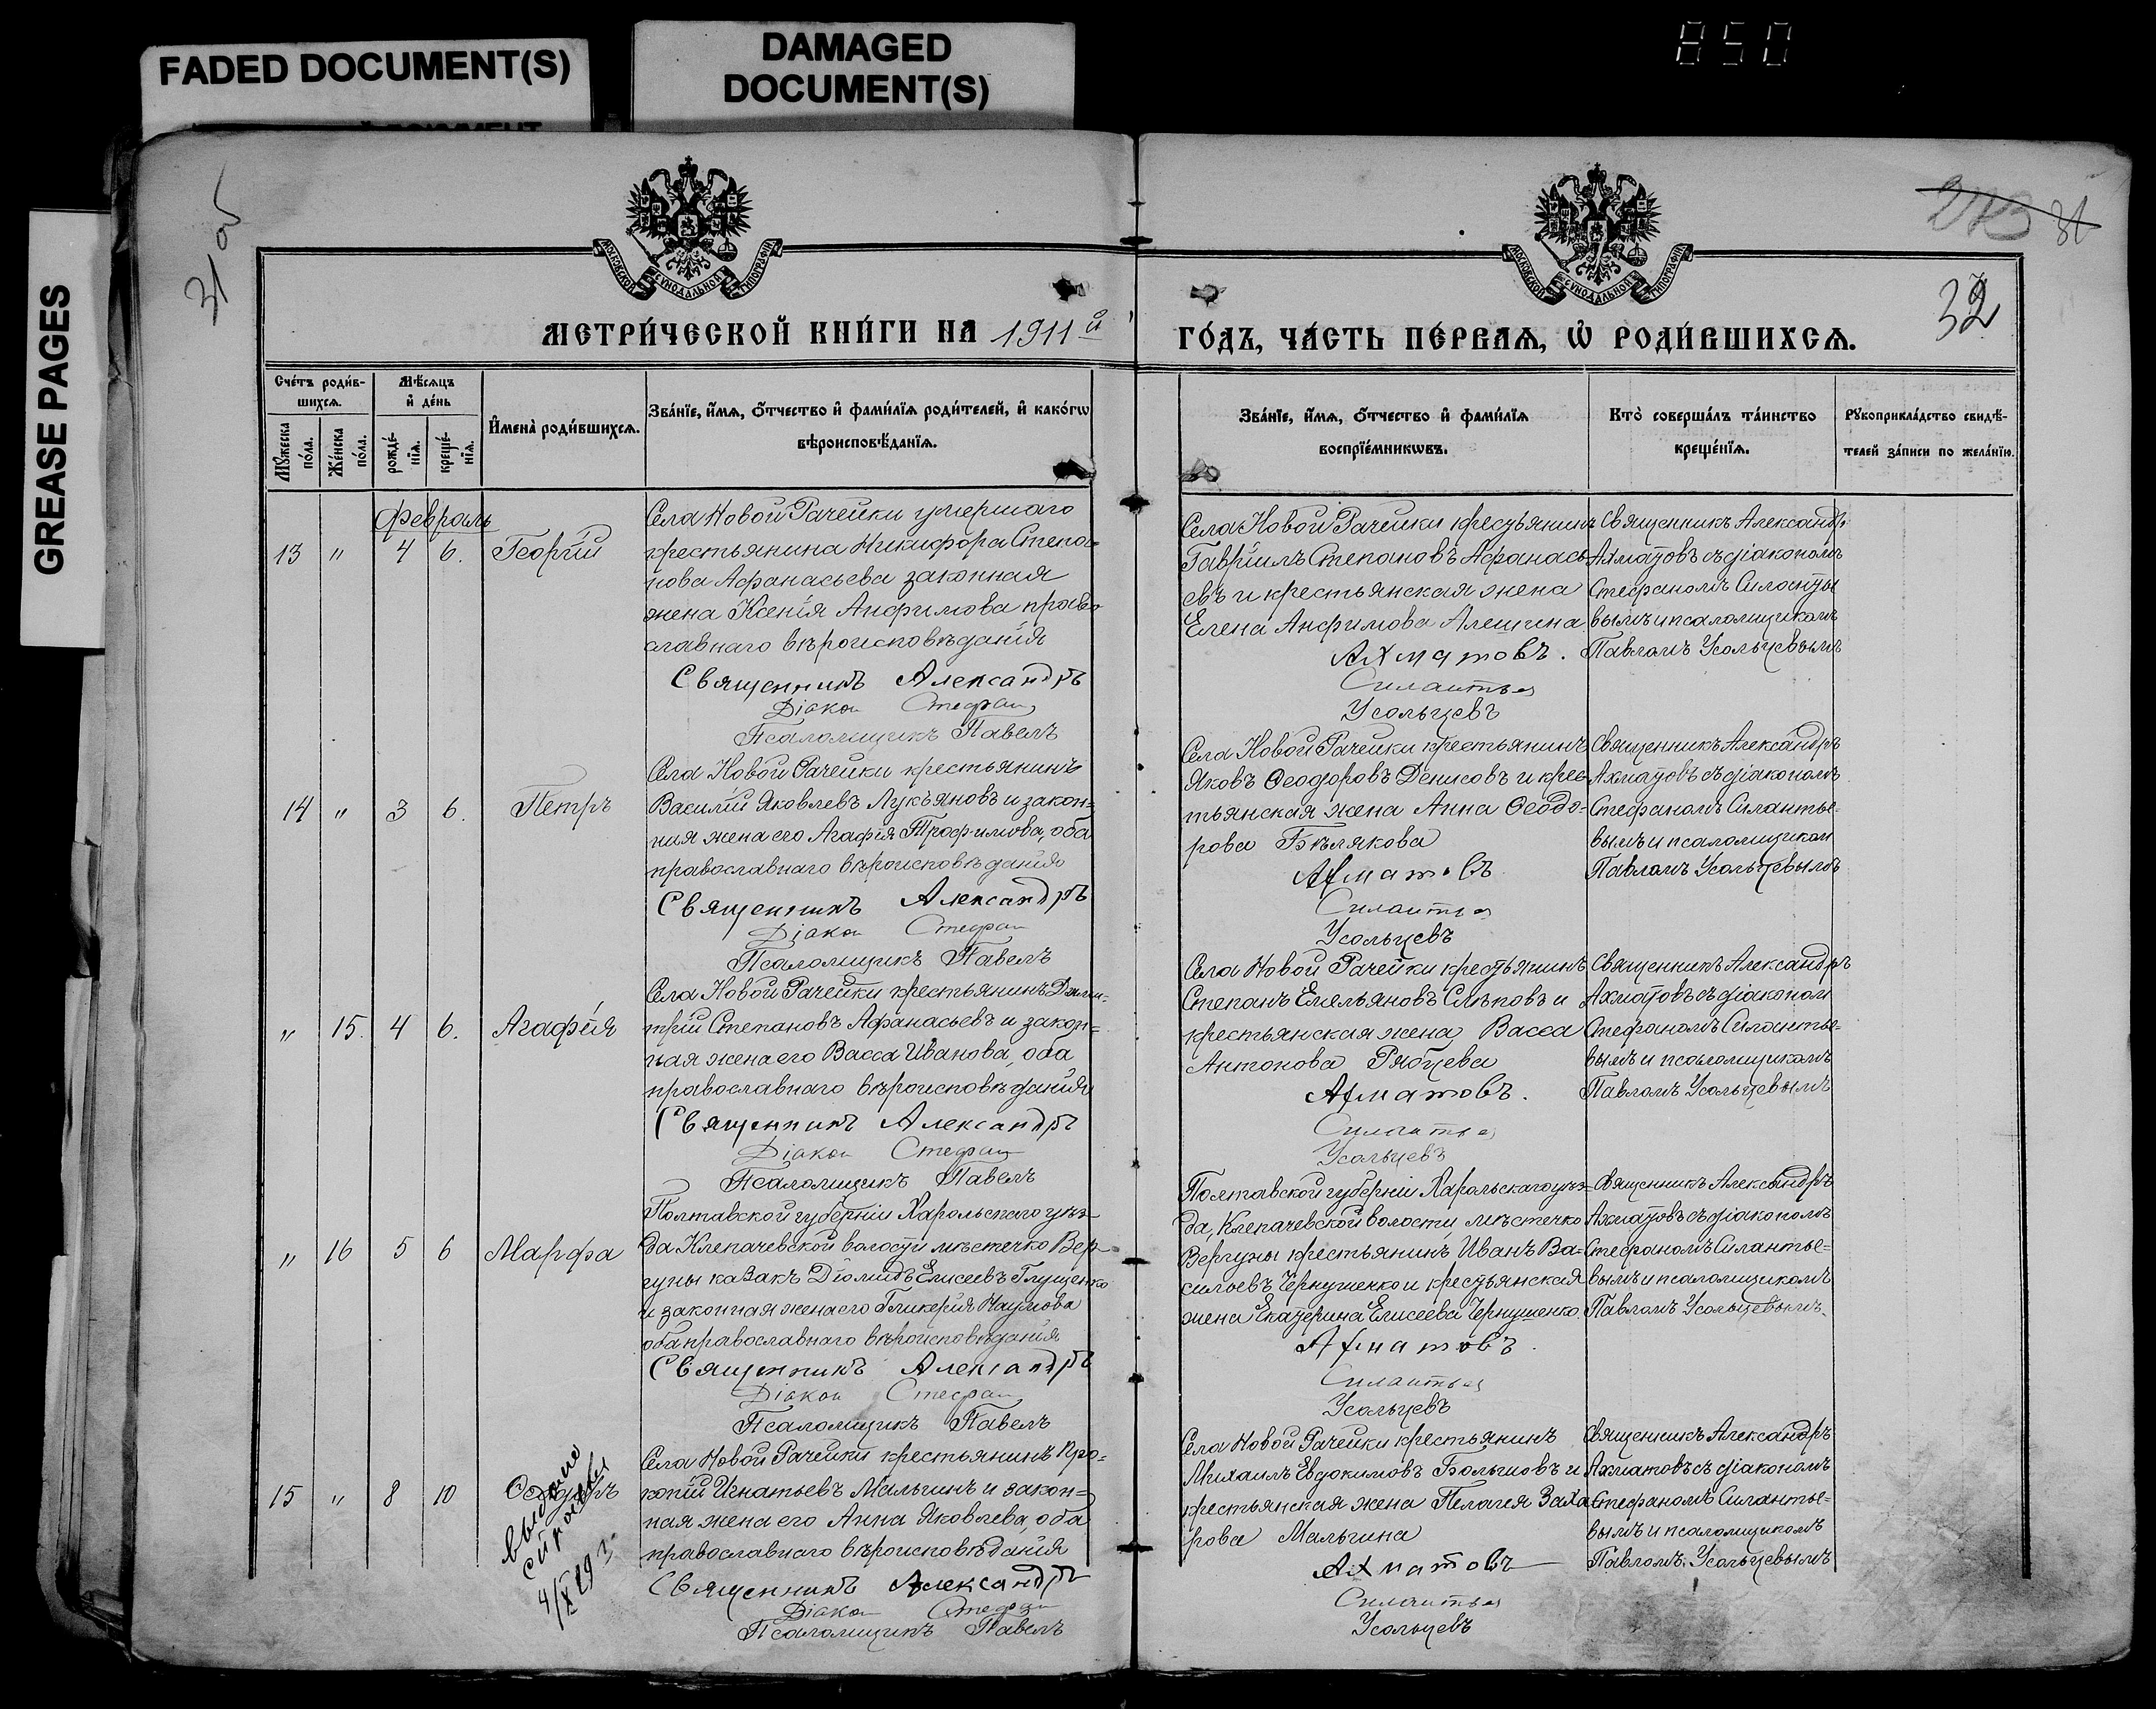 850
FADED DOCUMENT(S)
DAMAGED
DOCUMENT(S)
GREASE PAGES
31 об
32
МОСКОВСКОЙ СѴНОДАЛЬНОЙ ТИПОГРАФІИ
МОСКОВСКОЙ СѴНОДАЛЬНОЙ ТИПОГРАФІИ
МЕТРИ́ЧЕСКОЙ КНИ́ГИ НА 1911й
ГО́ДЪ, ЧА́СТЬ ПЕ́РВАѦ, Ѡ РОДИ́ВШИХСѦ.
Сче́тъ роди́в-
шихсѧ.
Мѣ́сѧцъ
и҆ де́нь
Мꙋ́жеска
по́ла.
Же́нска
по́ла.
рожде́-
нїѧ.
креще́-
нїѧ.
И҆мена̀ роди́вшихсѧ.
Зва́нїе, и҆́мѧ, ѻ҆́тчество и҆ фами́лїѧ роди́телей, и҆ како́гѡ
вѣроисповѣ́данїѧ.
Зва́нїе, и҆́мѧ, ѻ҆́тчество и҆ фами́лїѧ
воспрїе́мникѡвъ.
Кто̀ соверша́лъ та́инство
креще́нїѧ.
Рꙋкоприкла́дство свидѣ́-
телей за́писи по жела́нїю.
Февраль
13 " 4 6. Георгій
Села Новой Рачейки умершаго
крестьянина Никифора Степа-
нова Афанасьева законная
жена Ксенія Анфимова право-
славнаго вѣроисповѣданія
Священникъ Александръ
Діакон Стефан
Псаломщикъ Павелъ
Села Новой Рачейки крестьянинъ
Гавріилъ Степановъ Афанась-
евъ и крестьянская жена
Елена Анфимова Алешина
Ахматовъ.
Силантьев
Усольцевъ
Священникъ Александръ
Ахматовъ съ діакономъ
Стефаномъ Силантье
вымъ и псаломщикомъ
Павломъ Усольцевымъ
14 " 3 6. Петръ
Села Новой Рачейки крестьянинъ
Василій Яковлевъ Лукъяновъ и закон-
ная жена его Агафія Трофимова, оба
православнаго вѣроисповѣданія
Священникъ Александръ
Діакон Стефан
Псаломщикъ Павелъ
Села Новой Рачейки крестьянинъ
Яковъ Ѳеодоровъ Денисовъ и крес-
тьянская жена Анна Ѳеодо-
рова Бѣлякова
Ахматовъ
Силантьев
Усольцевъ
Священникъ Александръ
Ахматовъ съ діакономъ
Стефаномъ Силантье-
вымъ и псаломщиком
Павломъ Усольцевымъ
" 15. 4 6. Агафія
Села Новой Рачейки крестьянинъ Дими-
трій Степановъ Афанасьевъ и закон-
ная жена его Васса Иванова, оба
православнаго вѣроисповѣданія
Священникъ Александръ
Діакон Стефан
Псаломщикъ Павелъ
Села Новой Рачейки крестьянинъ
Степанъ Емельяновъ Слѣповъ и
крестьянская жена Васса
Антонова Рябцева
Ахматовъ.
Силантьев
Усольцевъ
Священникъ Александръ
Ахматовъ съ діаконом
Стефаномъ Силантье-
вымъ и псаломщикомъ
Павломъ Усольцевымъ
" 16 5 6 Марфа
Полтавской губерніи Харольскаго уѣз-
да Клепачевской волости мѣстечко Вер-
гуны казакъ Діомидъ Елисеевъ Глущенко
и законная жена его Гликерія Наумова
оба православнаго вѣроисповѣданія
Священникъ Александръ
Діакон Стефан
Псаломщикъ Павелъ
Полтавской губерніи Харольскаго уѣз-
да, Клепачевской волости мѣстечко
Вергуны крестьянинъ Иванъ Ва-
сильевъ Чернушенко и крестьянская
жена Екатерина Елисеева Чернушенко.
Ахматовъ.
Силантьев
Усольцевъ
Священникъ Александръ
Ахматовъ съ діакономъ
Стефаномъ Силантье-
вымъ и псаломщикомъ
Павломъ Усольцевымъ
15 " 8 10 Ѳеодоръ
выдано
4/X 29 г.
Села Новой Рачейки крестьянинъ Про-
копій Игнатьевъ Мальгинъ и закон-
ная жена его Анна Яковлева, оба
православнаго вѣроисповѣданія
Священникъ Александръ
Діакон Стефан
Псаломщикъ Павелъ
Села Новой Рачейки крестьянинъ
Михаилъ Евдокимовъ Большовъ и
крестьянская жена Пелагея Заха-
рова Мальгина
Ахматовъ
Силантьев
Усольцевъ
Священникъ Александръ
Ахматовъ съ діакономъ
Стефаномъ Силантье-
вымъ и псаломщикомъ
Павломъ Усольцевымъ